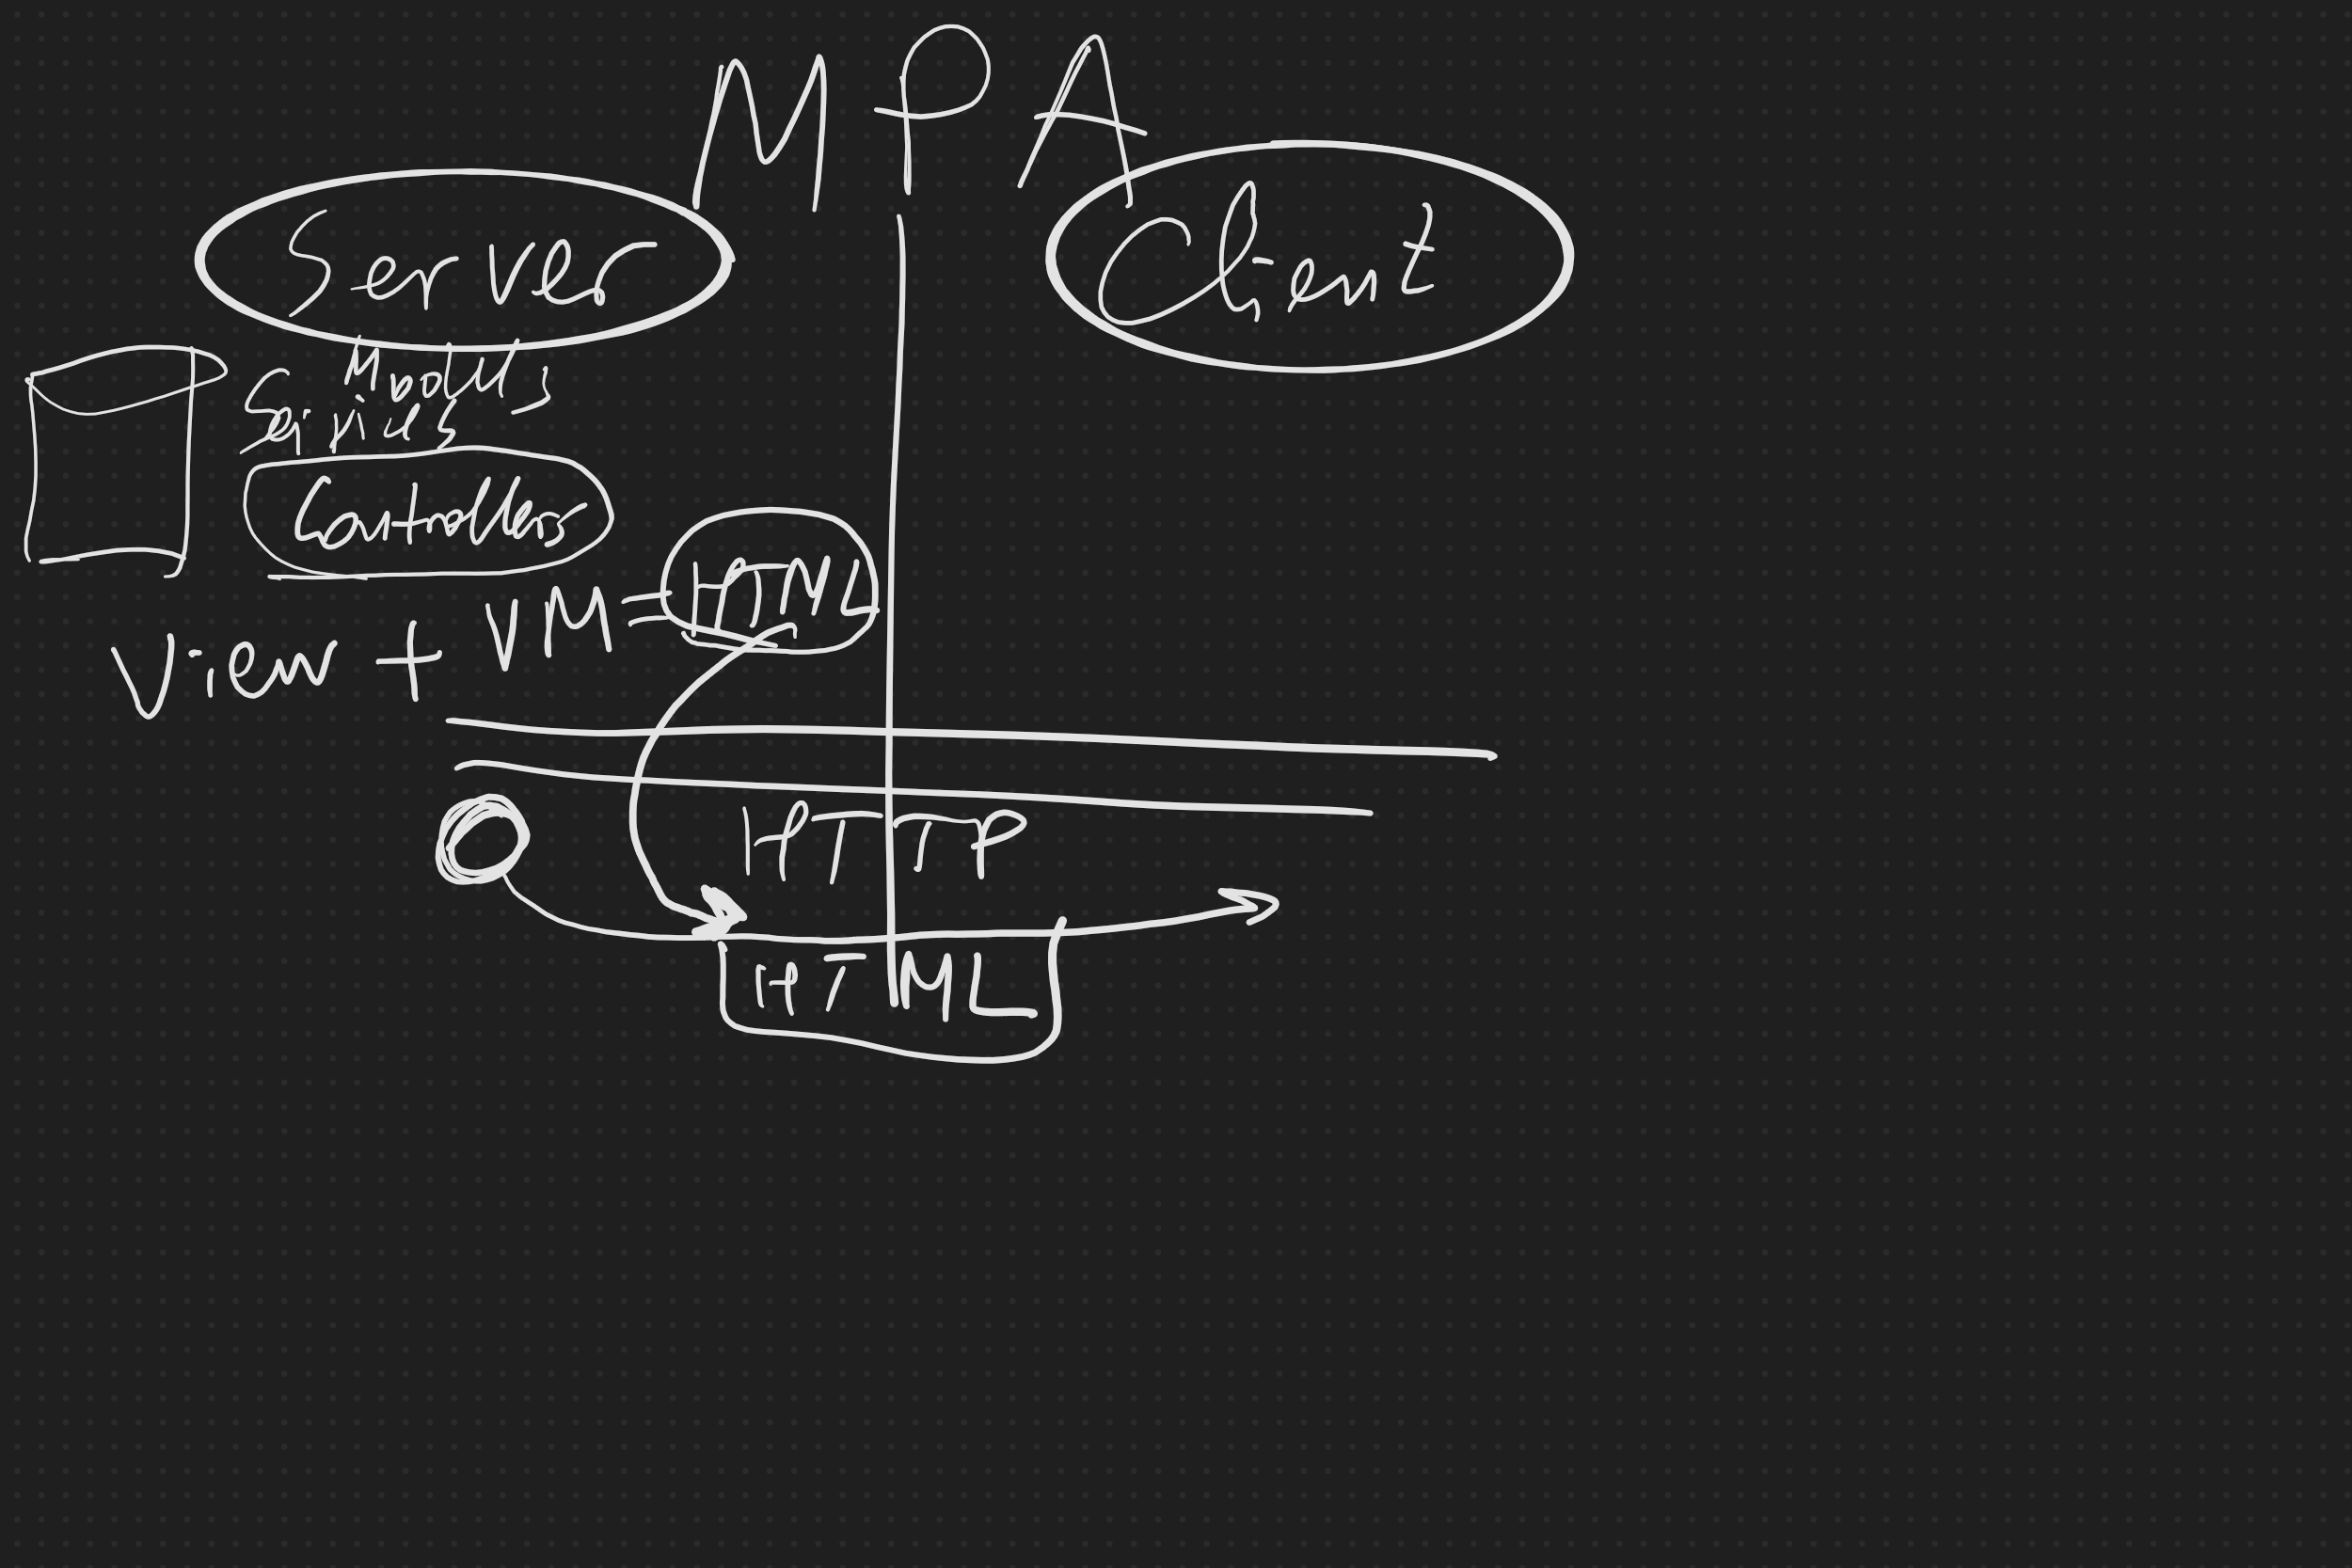 MPA
Server
Client
Modules
Services
Controllers
View + VM = HTML
HTTP
HTML